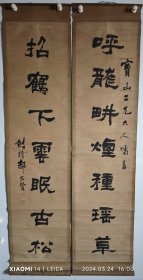 寶山二兄大人雅屬
呼龍畊煙種瑤草
招鶴下雲眠古松
XIAOMI 14 | LEICA
2024.03.24 16:00